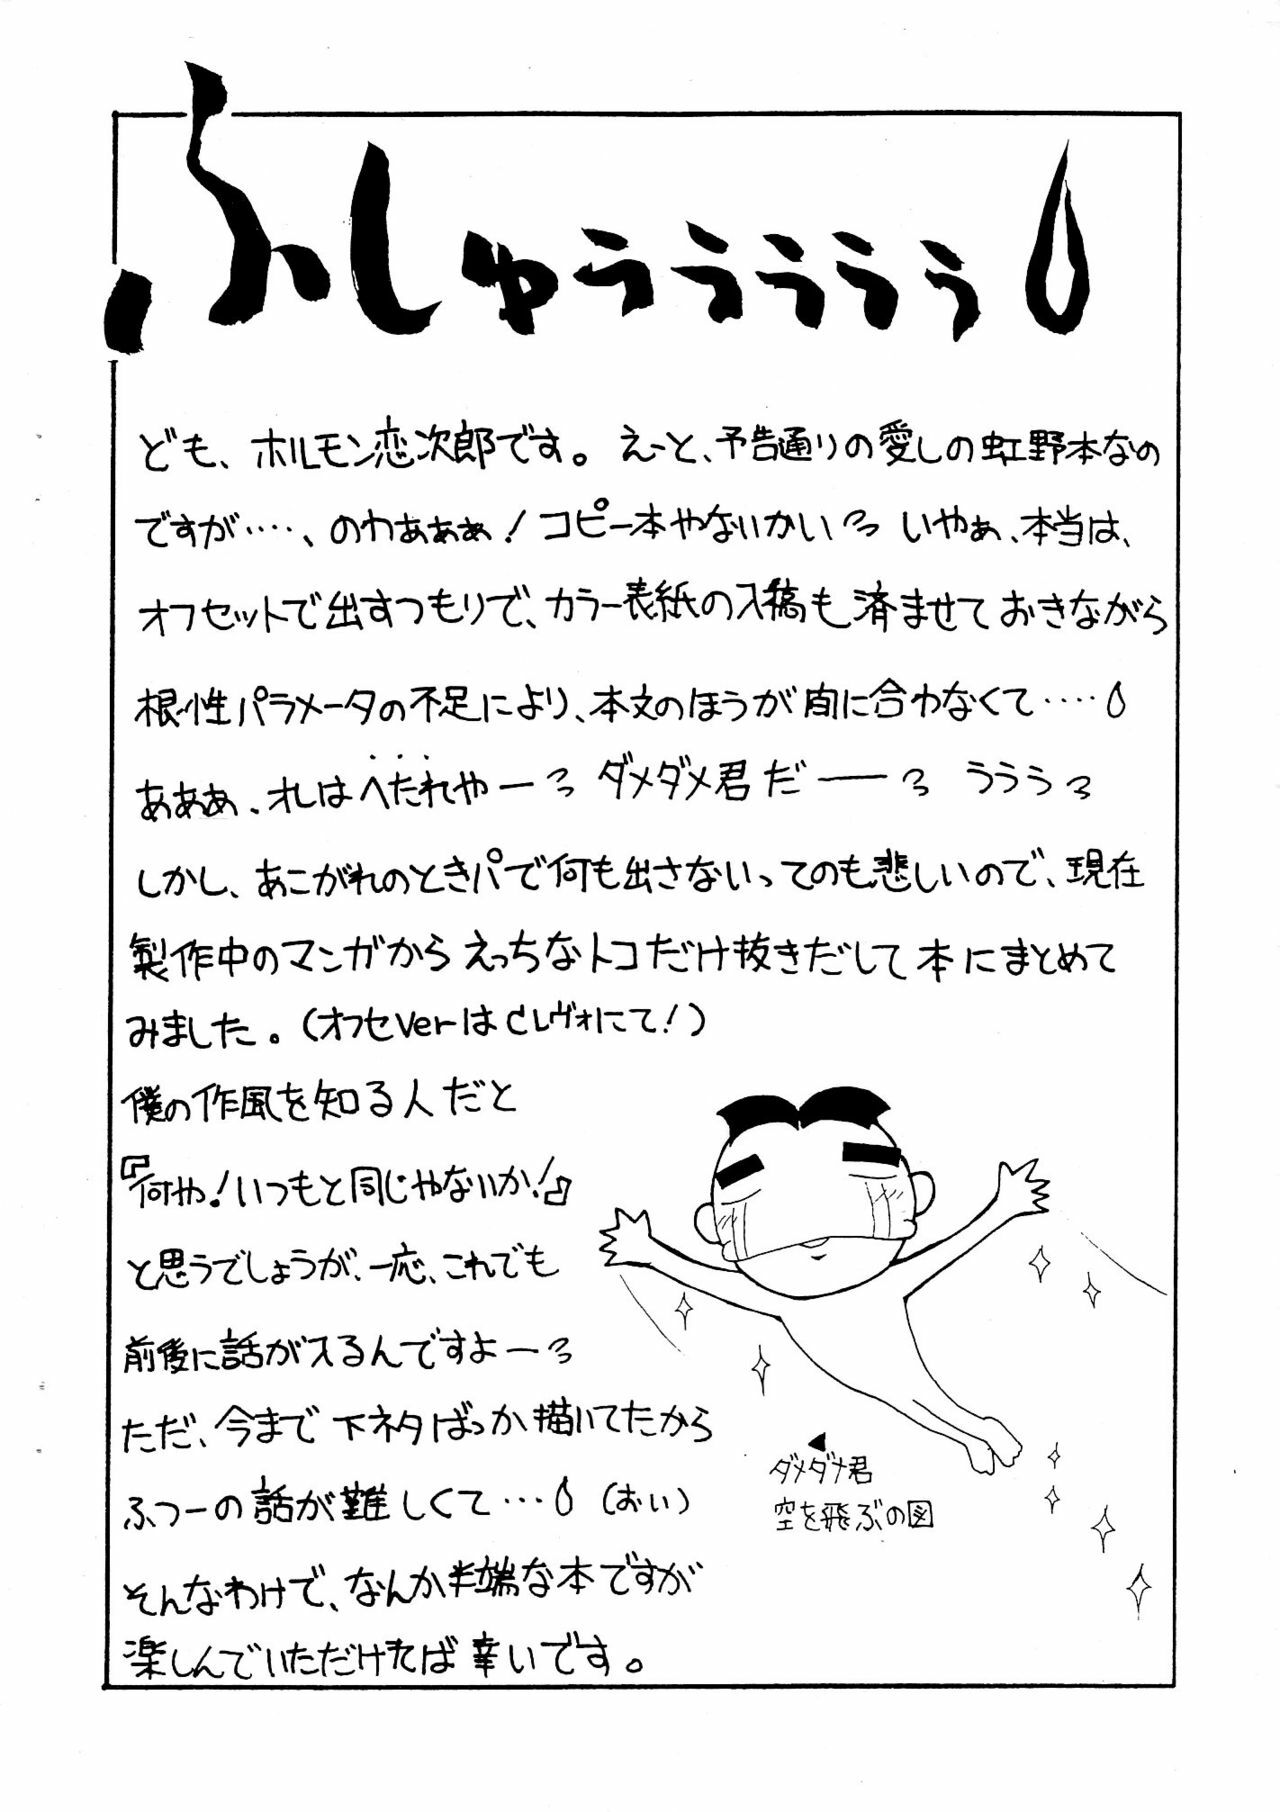 ふしゅぅぅぅぅぅ
ども、ホルモン恋次郎です。えーと、予告通りの愛しの虹野本なの
ですが‥‥、のわぁぁぁ！コピー本やないかいっ いやぁ、本当は、
オフセットで出すつもりで、カラー表紙の入稿も済ませておきながら
根性パラメータの不足により、本文のほうが間に合わなくて‥‥
あぁぁぁ、オレはへたれやーっ ダメダメ君だ――っ うううっ
しかし、あこがれのときパで何も出さないってのも悲しいので、現在
製作中のマンガからえっちなトコだけ抜きだして本にまとめて
みました。（オフセVerはCレヴォにて！）
僕の作風を知る人だと
『何や！いつもと同じやないか！』
と思うでしょうが、一応、これでも
前後に話が入るんですよーっ
ただ、今まで下ネタばっか描いてたから
ふつーの話が難しくて…（おい）
そんなわけで、なんか半端な本ですが
楽しんでいただければ幸いです。
◀
ダメダメ君
空を飛ぶの図